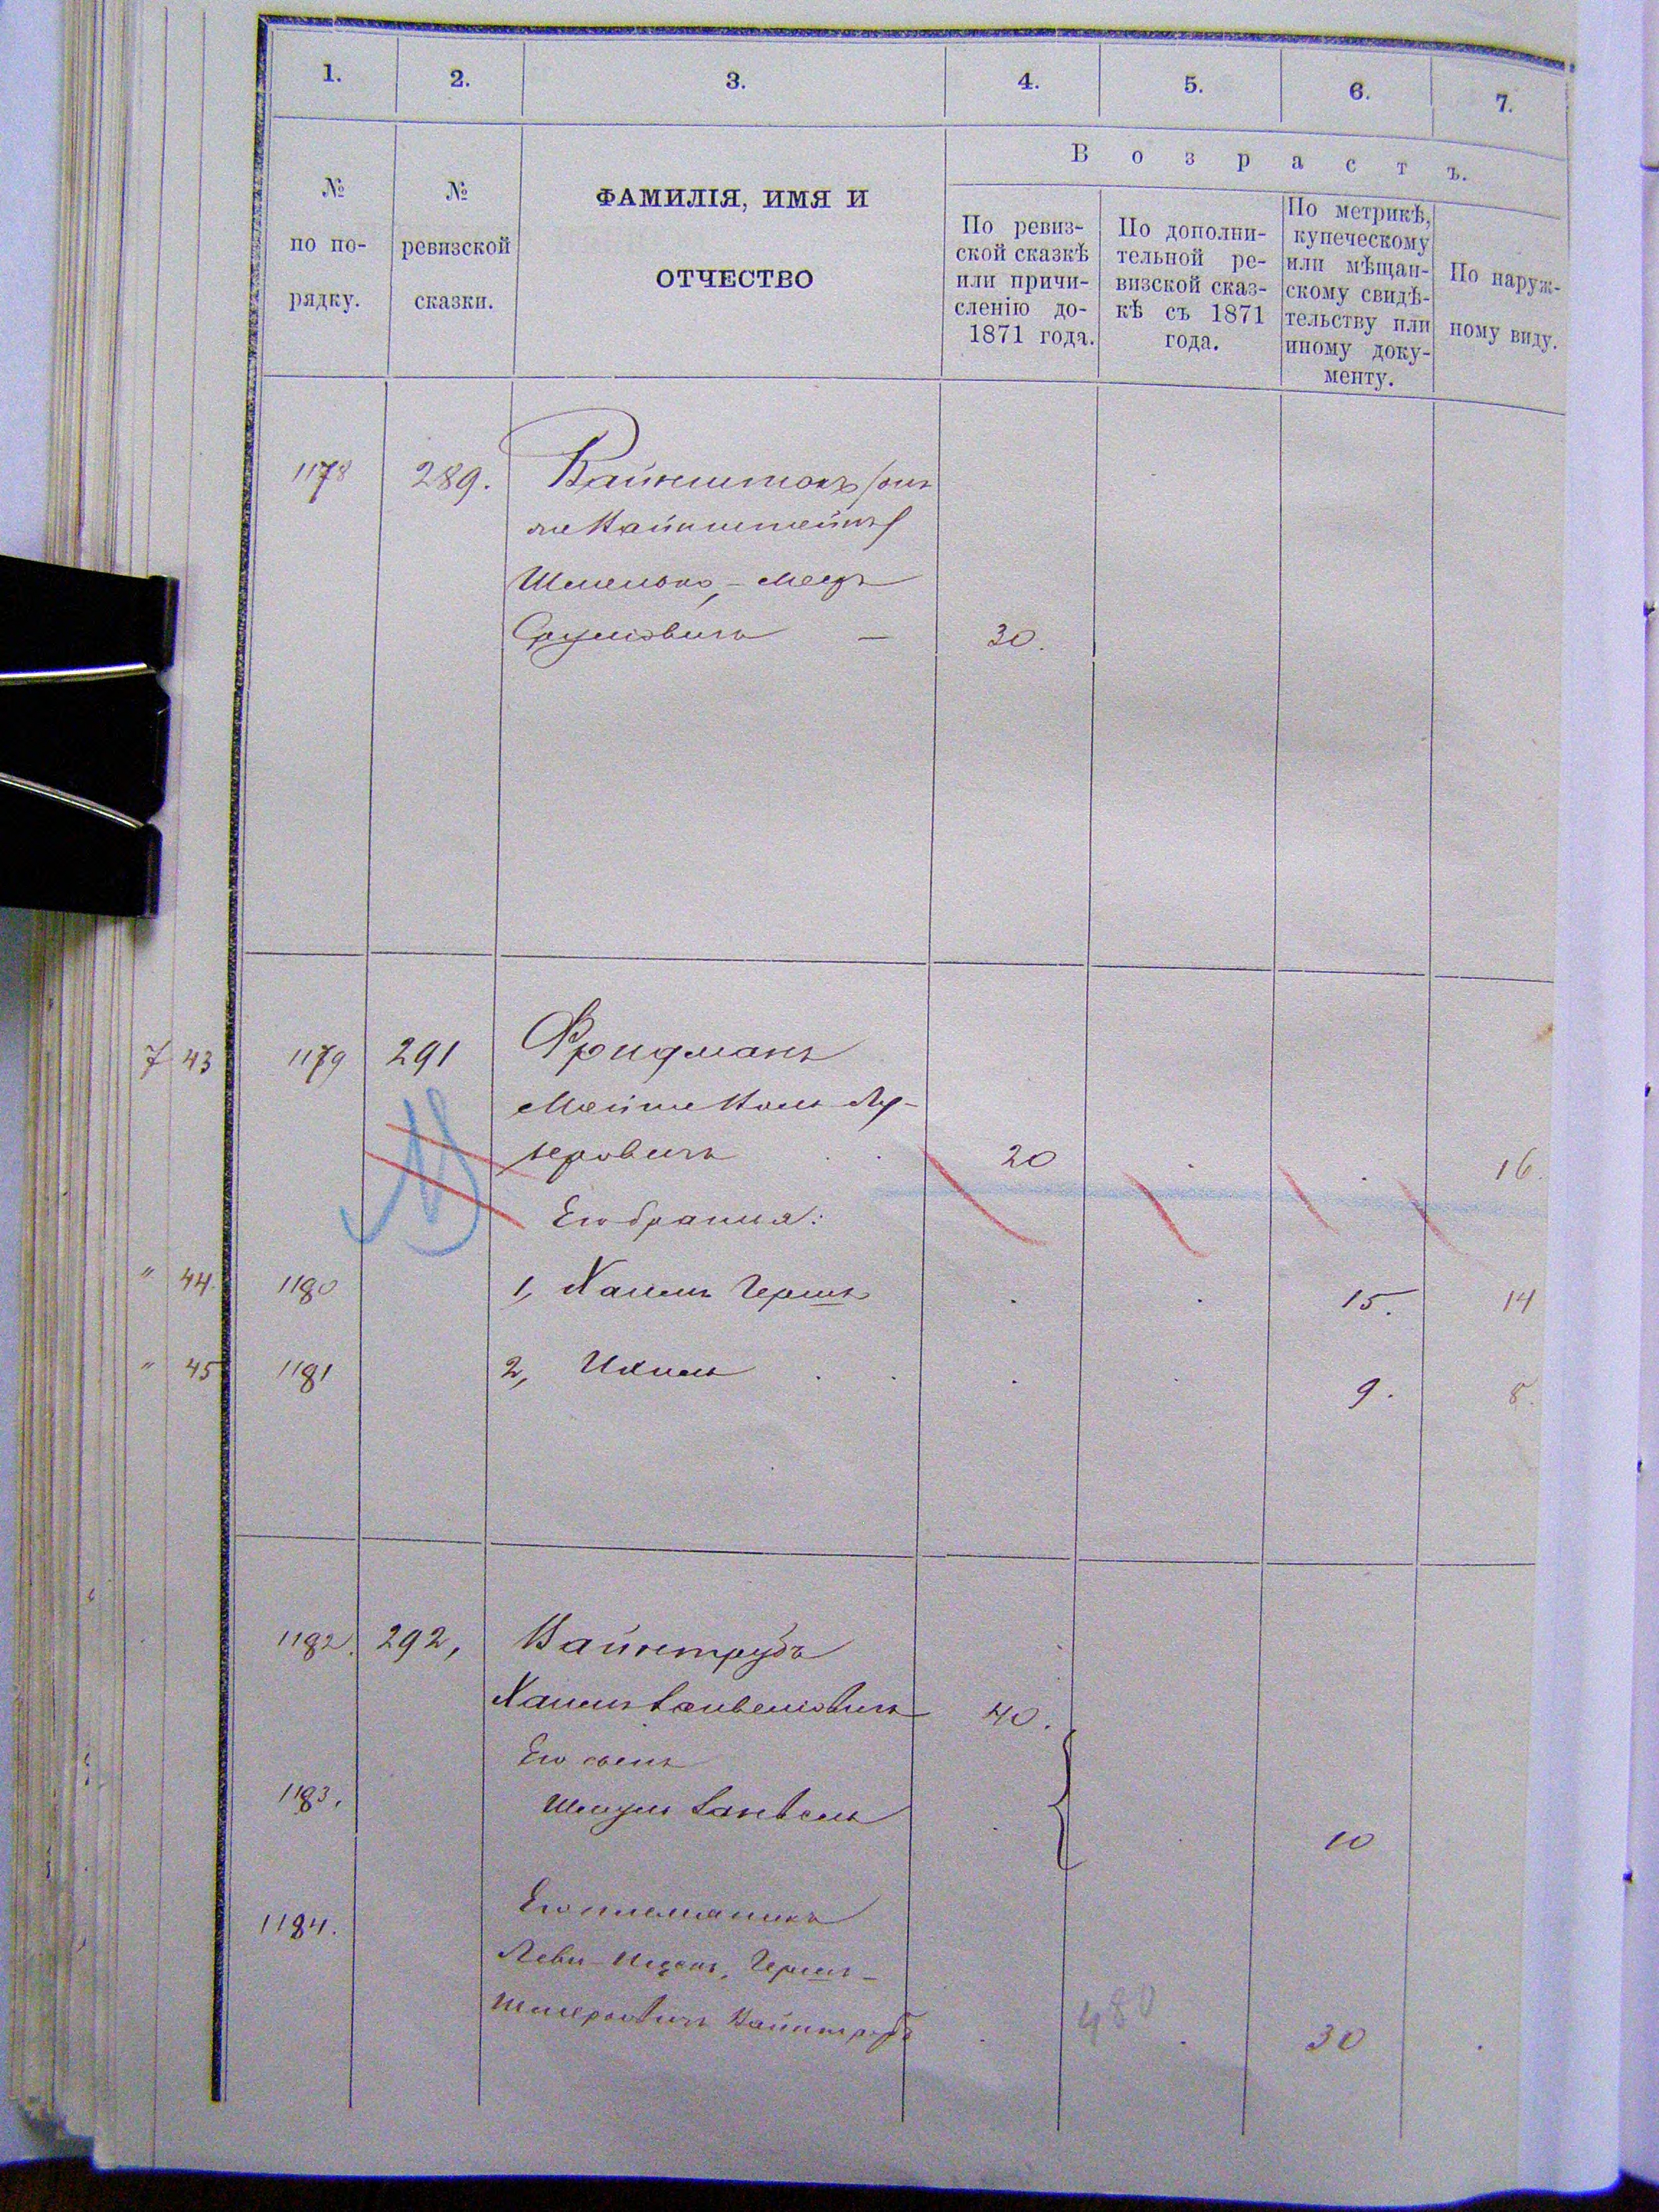 1. 2. 3. 4. 5. 6. 7.
№ по по-рядку.
№ ревизской сказки.
ФАМИЛІЯ, ИМЯ И
ОТЧЕСТВО
Возрастъ.
По ревиз-
ской сказкѣ
или причи-
сленію до-
1871 года.
По дополни-
тельной ре-
визской сказ-
кѣ съ 1871
года.
По метрикѣ,
купеческому
или мѣщан-
скому свидѣ-
тельству или
иному доку-
менту.
По наруж-
ному виду.
1178 289. Вайнштокъ /онъ
же Вайнштейнъ/
Шмелько, - Мееръ
Сруловичъ — 30.
7 43 1179 291 Фридманъ
Мойше Лей-
зеровичъ 20 16.
Его братья:
" 44. 1180 1, Хаимъ Гершъ 15. 14
" 45 1181 2, Ихиль 9. 8.
1182. 292, Вайнтрубъ
Хаимъ 40.
Его сынъ
1183. Шмуль 10
1184. Его племяникъ
Леви-Ицекъ, Гершъ-
Шмеровичъ Вайнтрубъ 30
480